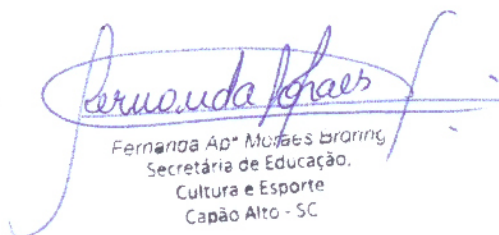 Fernanda Moraes
Fernanda Apª Moraes Broring
Secretária de Educação,
Cultura e Esporte
Capão Alto - SC